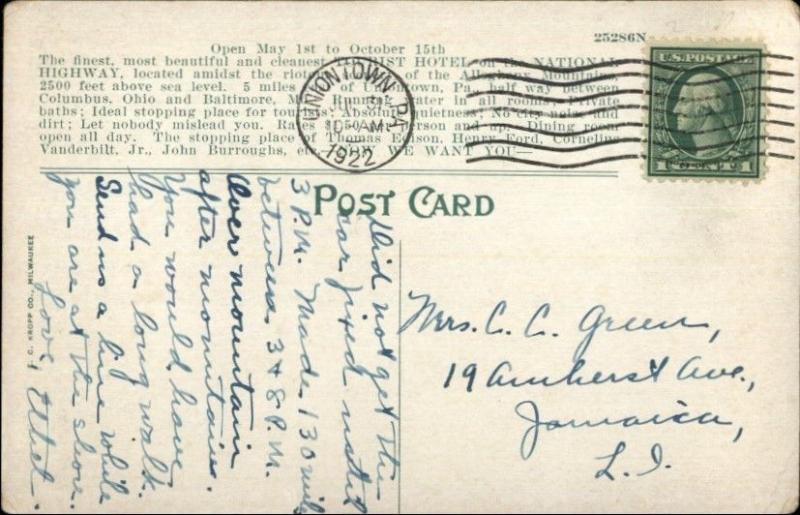 25286N
Open May 1st to October 15th
The finest, most beautiful and cleanest TOURIST HOTEL on the NATIONAL
HIGHWAY, located amidst the of the Allegheny Mountains,
2500 feet above sea level. 5 miles of Uniontown, Pa., half way between
Columbus, Ohio and Baltimore, Md. Running water in all rooms. Private
baths; Ideal stopping place for tourists; Absolute quietness; No city noise and
dirt; Let nobody mislead you. Rates $1.50 person and up. Dining room
open all day. The stopping place of Thomas Edison, Henry Ford, Cornelius
Vanderbilt, Jr., John Burroughs, etc. WE WANT YOU—
UNIONTOWN, PA.
AM
1922
U.S. POSTAGE
1 CENT 1
POST CARD
Did not get the
car fixed until
3 P.M. Made 130 miles
between 3 & 8 P.M.
Over mountain
after mountain.
You would have
had a long walk.
Send us a line while
you are at the shore.
Love, Ethel.
Mrs. C. C. Green,
19 Amherst Ave.,
Jamaica,
L. I.
E. C. KROPP CO., MILWAUKEE